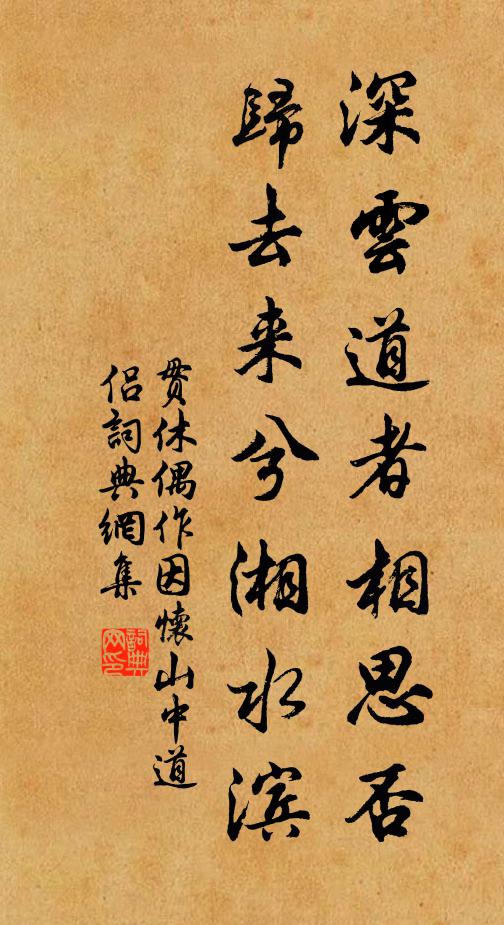 深雲道者相思否
歸去来兮湘水滨
贯休偶作因懷山中道
侣詞典網集
詞典
网印